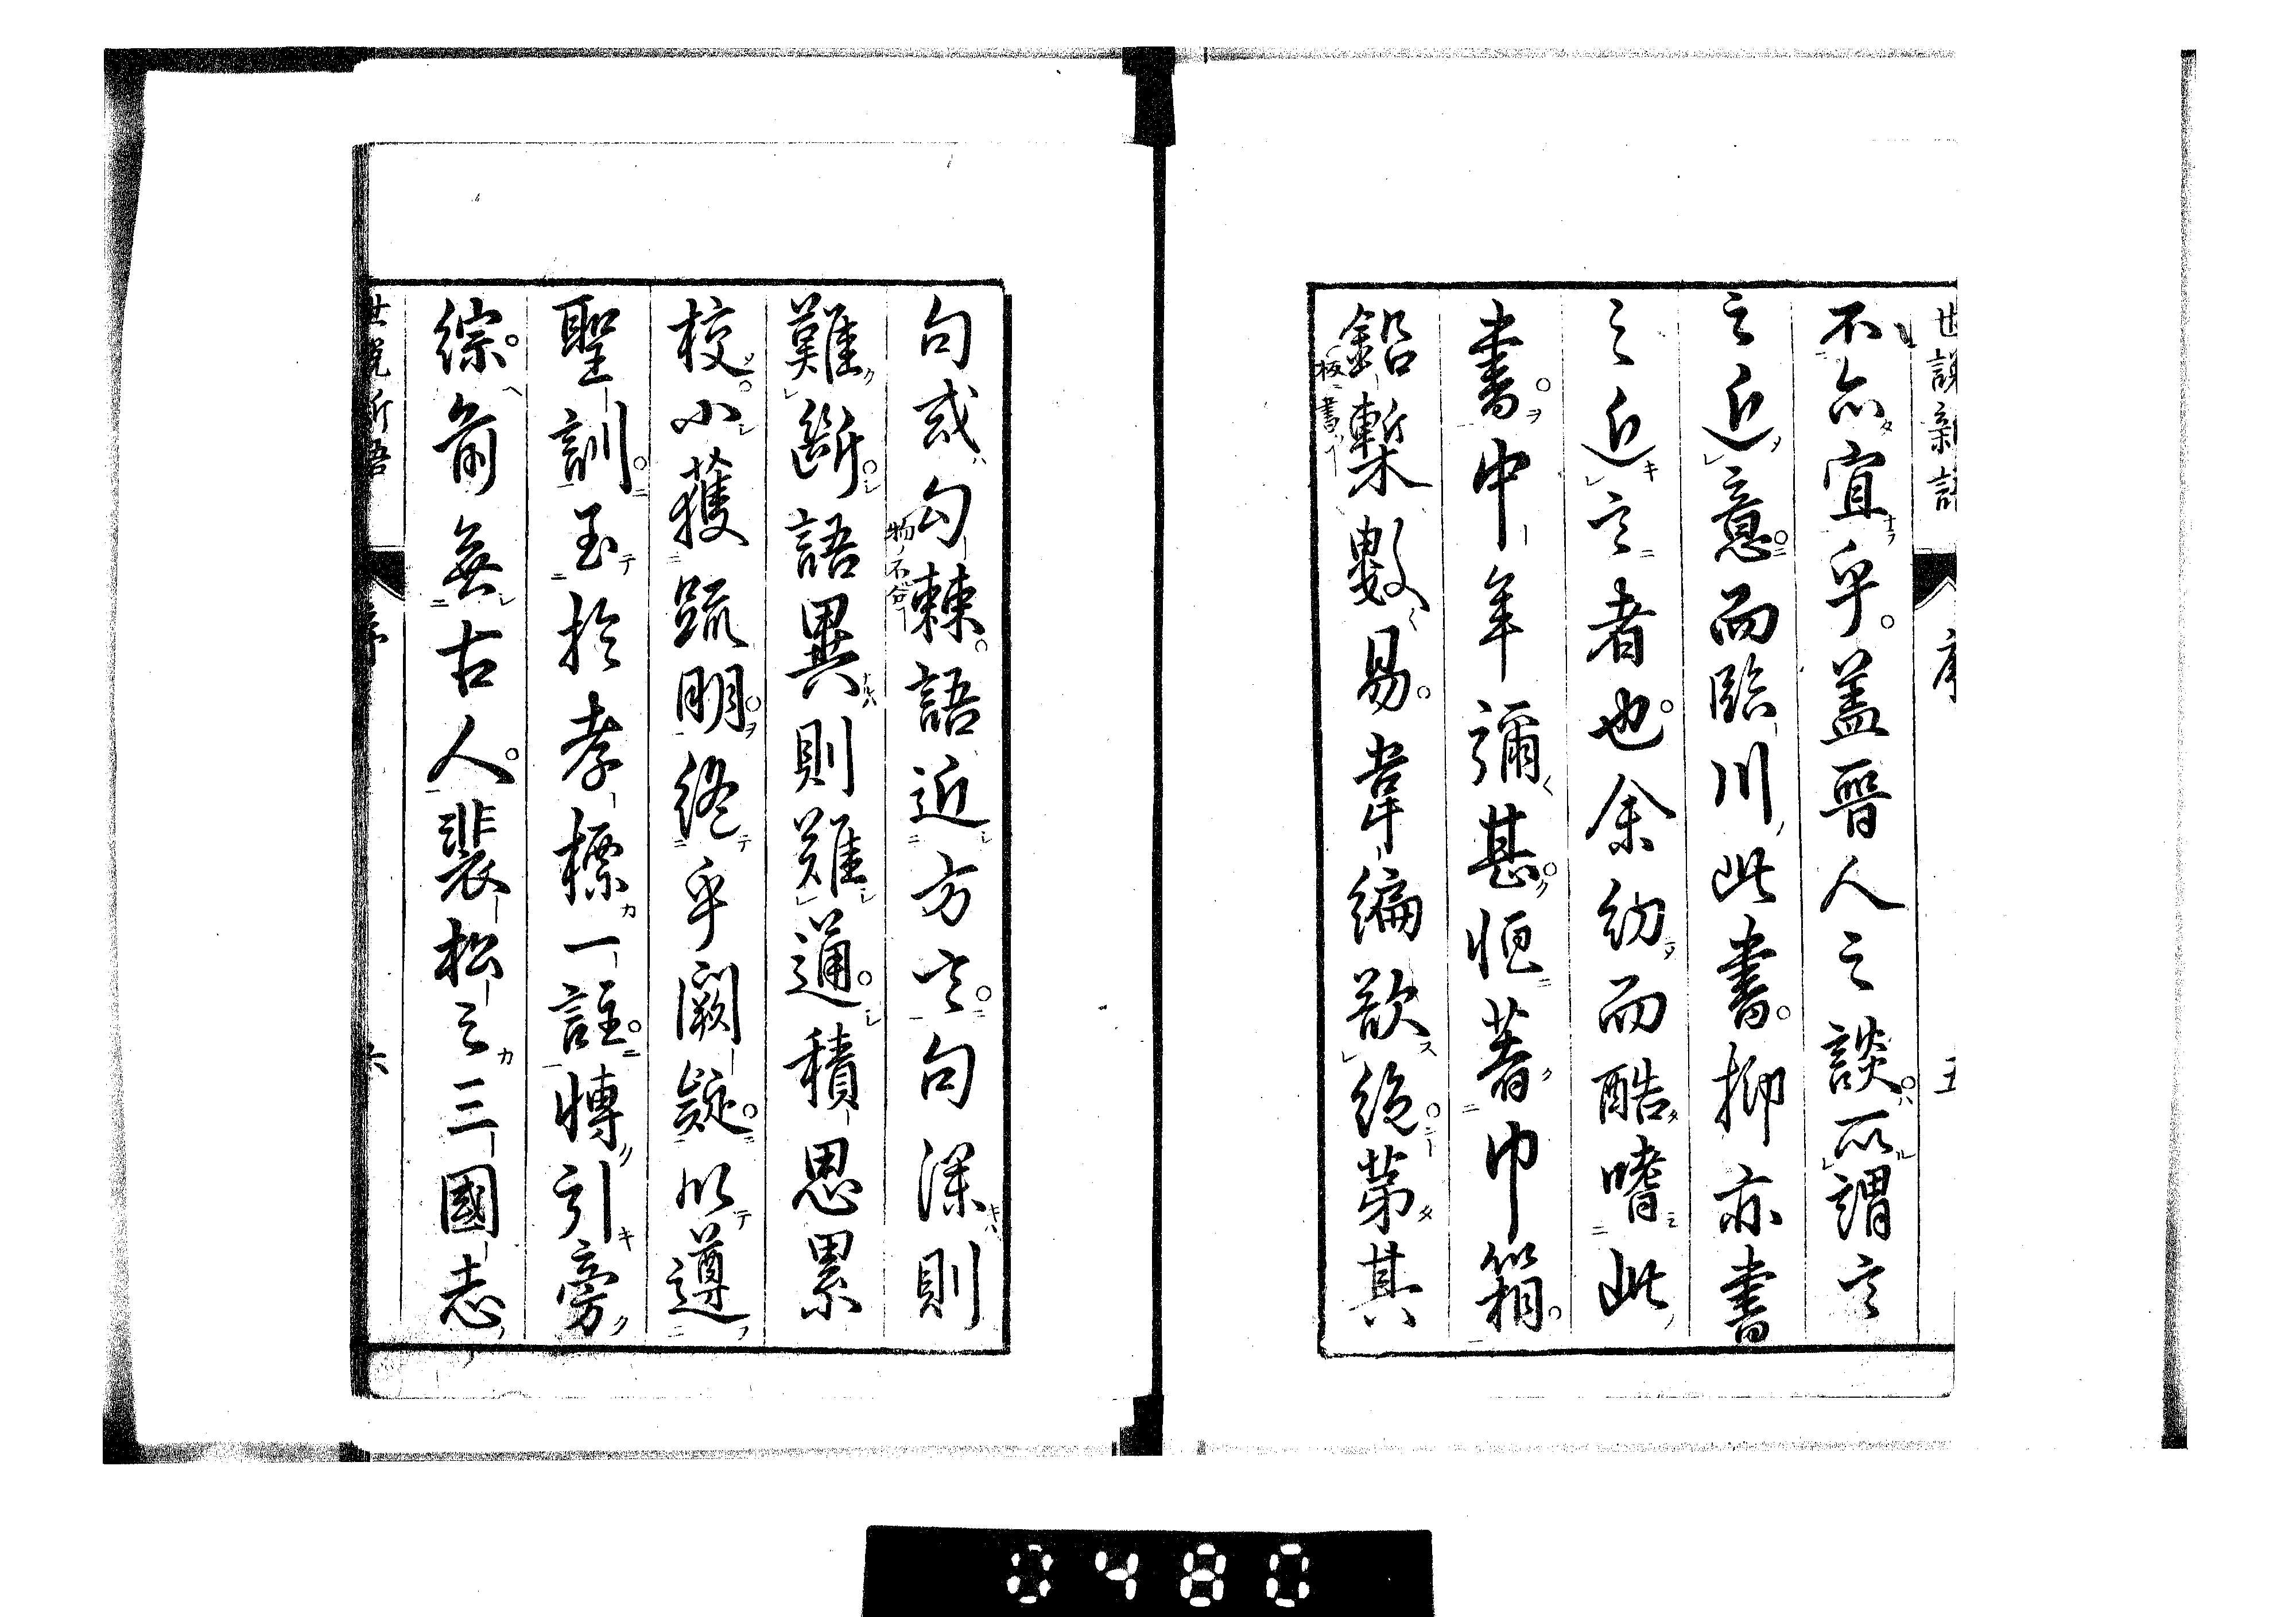 世說新語 序 五
不亦宜乎盖晉人之談所謂言
之近意而臨川此書抑亦書
之近言者也余幼而酷嗜此
書中年彌甚恒著巾箱
鉛槧數易韋編欲絶第其
板ニ書
句或勾棘語近方言句深則
物ノ不合
難斷語異則難通積思累
校小獲疏明終乎闕疑以遵
聖訓至於孝標一註博引旁
綜前無古人裴松之三國志
世說新語 序 六
0480